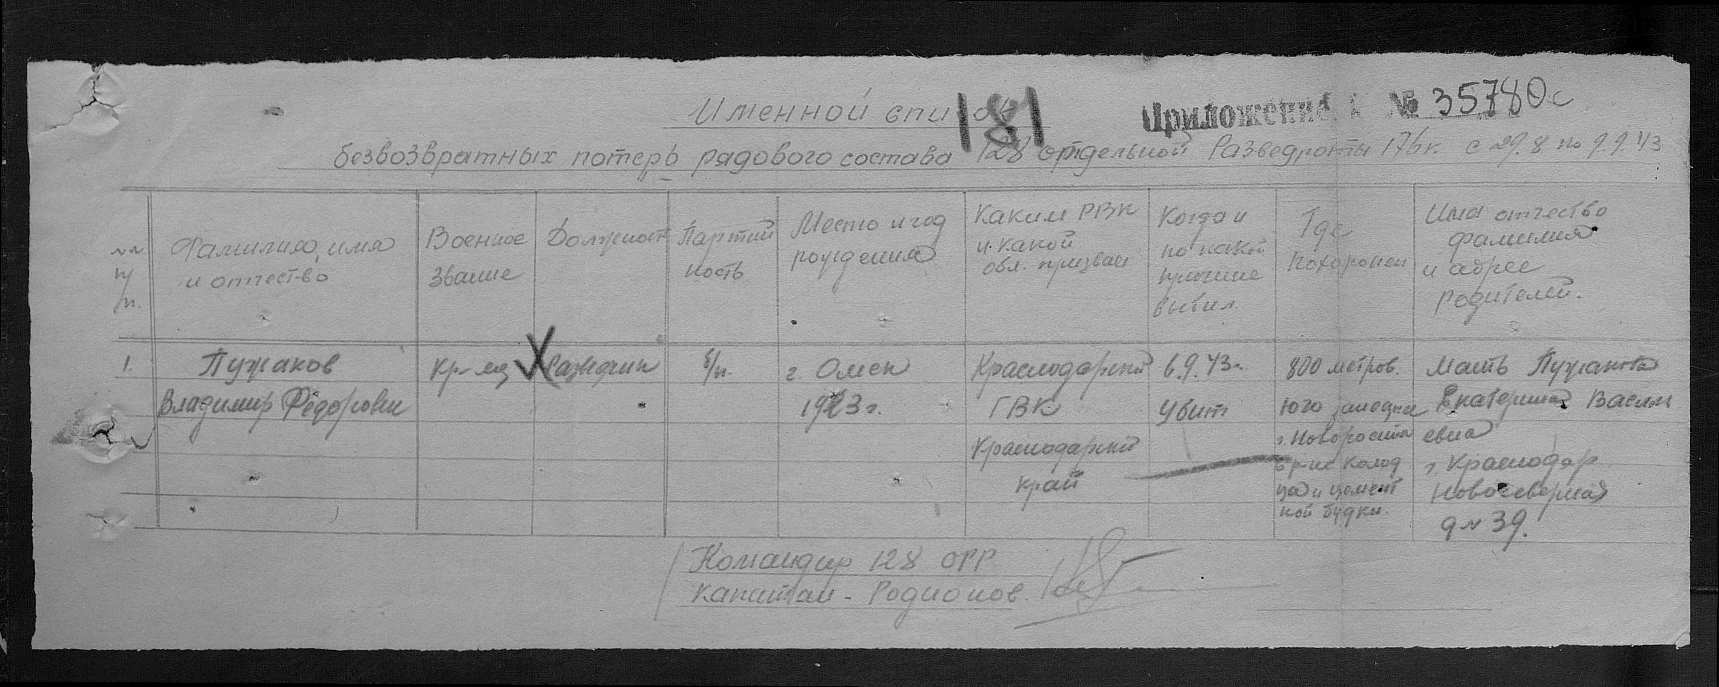 Именной список
181
Приложение к № 35780с
безвозвратных потерь рядового состава 128 отдельной Разведроты 176к. с 29.8 по 9.9.43
№№ п/п.
Фамилия, имя
и отчество
Военное
звание
Должност
Партий
ность
Место и год
рождения
Каким РВК
и какой
обл. призван
Когда и
по какой
причине
выбыл.
Где
похоронен
Имя отчество
фамилия
и адрес
родителей.
1.
Пужаков
Владимир Фёдорович
кр-ец
Разведчик
б/п.
г. Омск
1923 г.
Краснодарский
ГВК
Краснодарский
край
6.9.43г.
Убит
800 метров.
юго западнее
г. Новоросийск
в р-не колод
ца и цемент
ной будки.
Мать Пужакова
Екатерина Васил
евна
г. Краснодар
Новосеверная
д № 39.
Командир 128 ОРР
Капитан - Родионов.